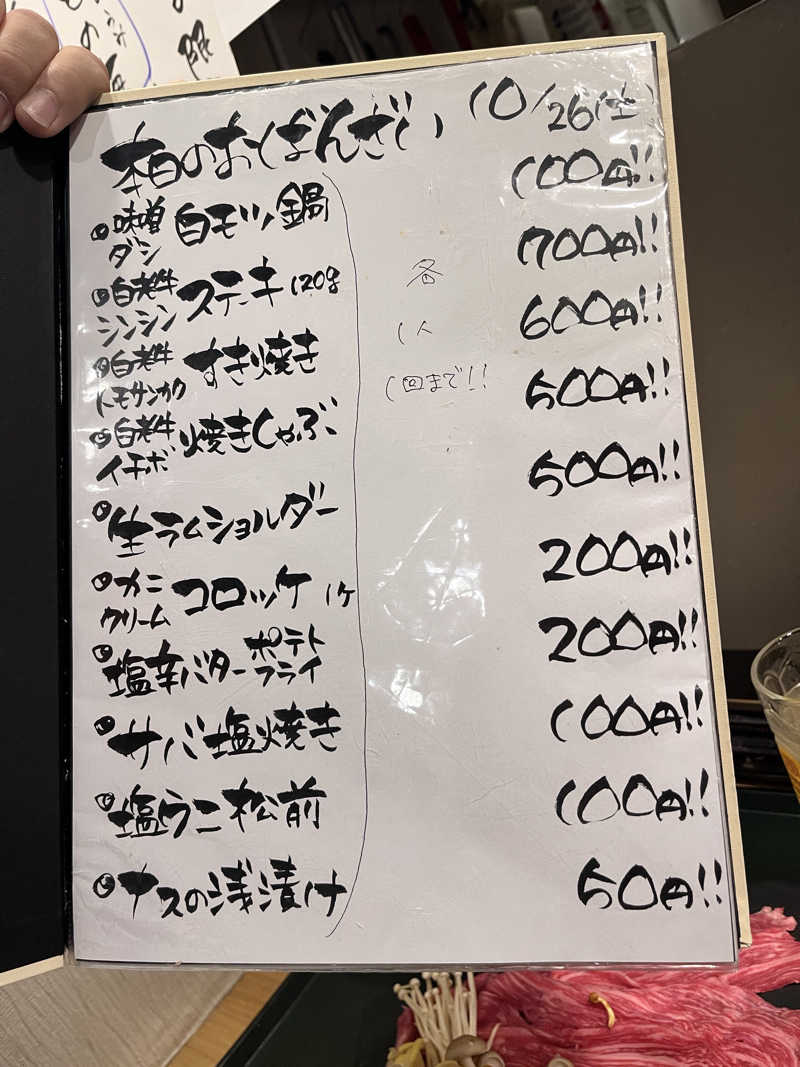 本日のおばんざい 10/26(土)
味噌ダシ 白モツ鍋 100円!!
白老牛シンシン ステーキ 120g 700円!!
白老牛トモサンカク すき焼き 600円!!
白老牛イチボ 焼きしゃぶ 500円!!
生ラムショルダー 500円!!
カニクリーム コロッケ 1ケ 200円!!
塩辛バターポテトフライ 200円!!
サバ塩焼き 100円!!
塩ウニ松前 100円!!
ナスの浅漬け 50円!!
各
1人
1回まで!!